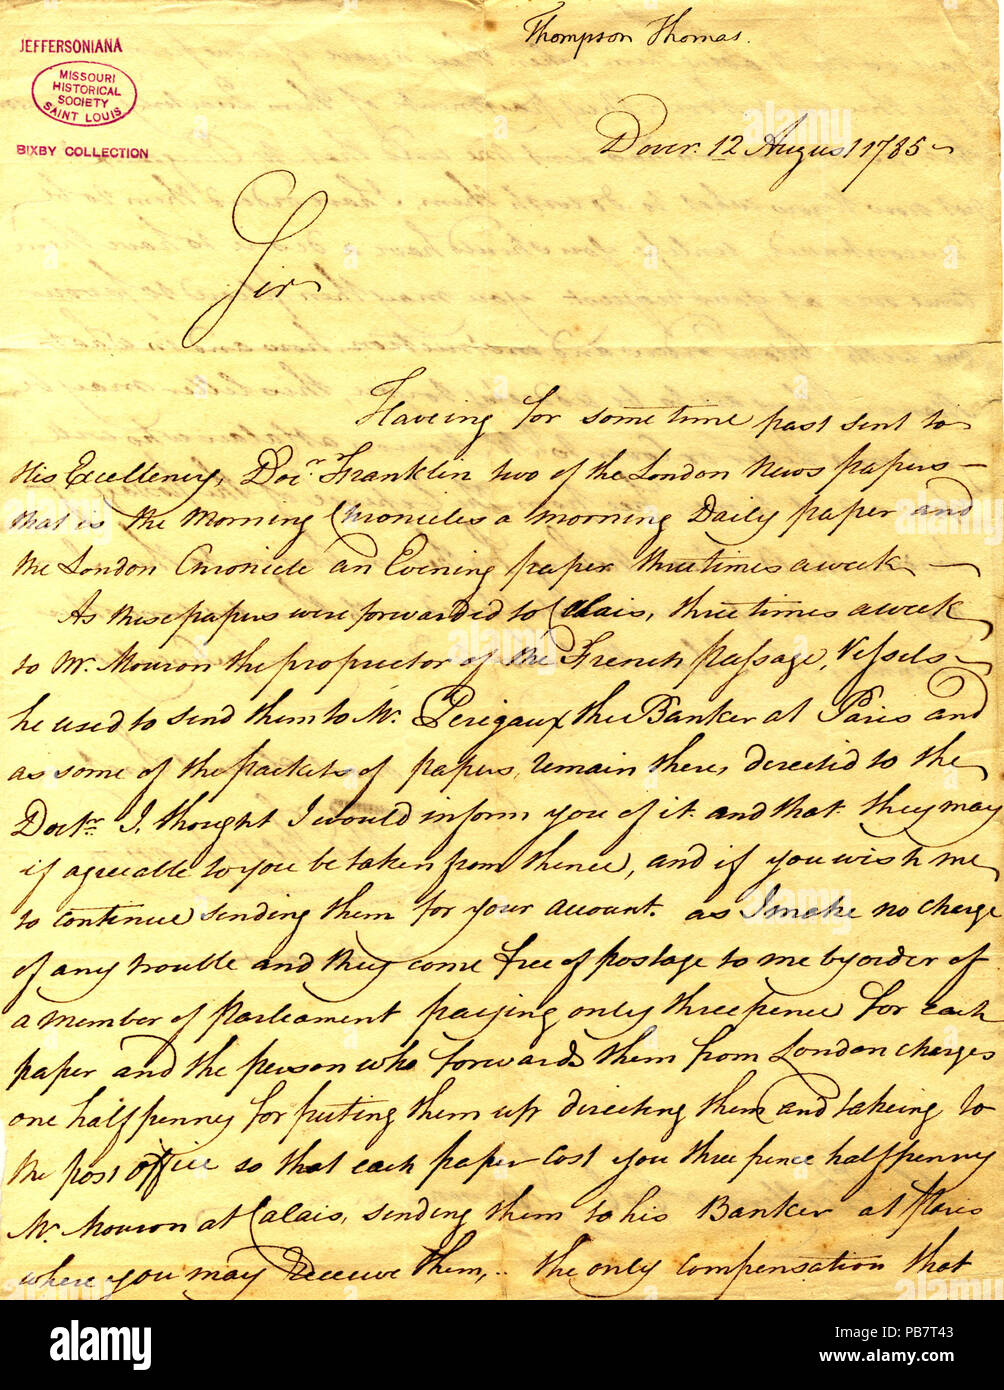 Thompson Thomas.
JEFFERSONIANA
MISSOURI
HISTORICAL
SOCIETY
SAINT LOUIS
BIXBY COLLECTION
Dover. 12 August 1785
Sir
Having for some time past sent to
His Excellency, Docr. Franklin two of the London News papers —
that is the Morning Chronicles a morning Daily paper and
the London Chronicle an Evening paper three times a week —
As these papers were forwarded to Calais, three times a week
to Mr. Mouron the proprietor of the French passage, Vessels
he used to send them to Mr. Perigaux the Banker at Paris and
as some of the packets of papers, remain there, directed to the
Doctr. I, thought I would inform you of it. and that they may
if agreeable to you be taken from thence, and if you wish me
to contenue sending them for your account. as I make no charge
of any trouble and they come free of postage to me by order of
a member of Parliament paying only three pence for each
paper and the person who forwards them from London charges
one halfpenny for puting them up directing them and takeing to
the post office so that each paper cost you three pence halfpenny
Mr. Mouron at Calais, sending them to his Banker at Paris
where you may Receive them, .. the only compensation that
alamy
Image ID: PB7T43
www.alamy.com